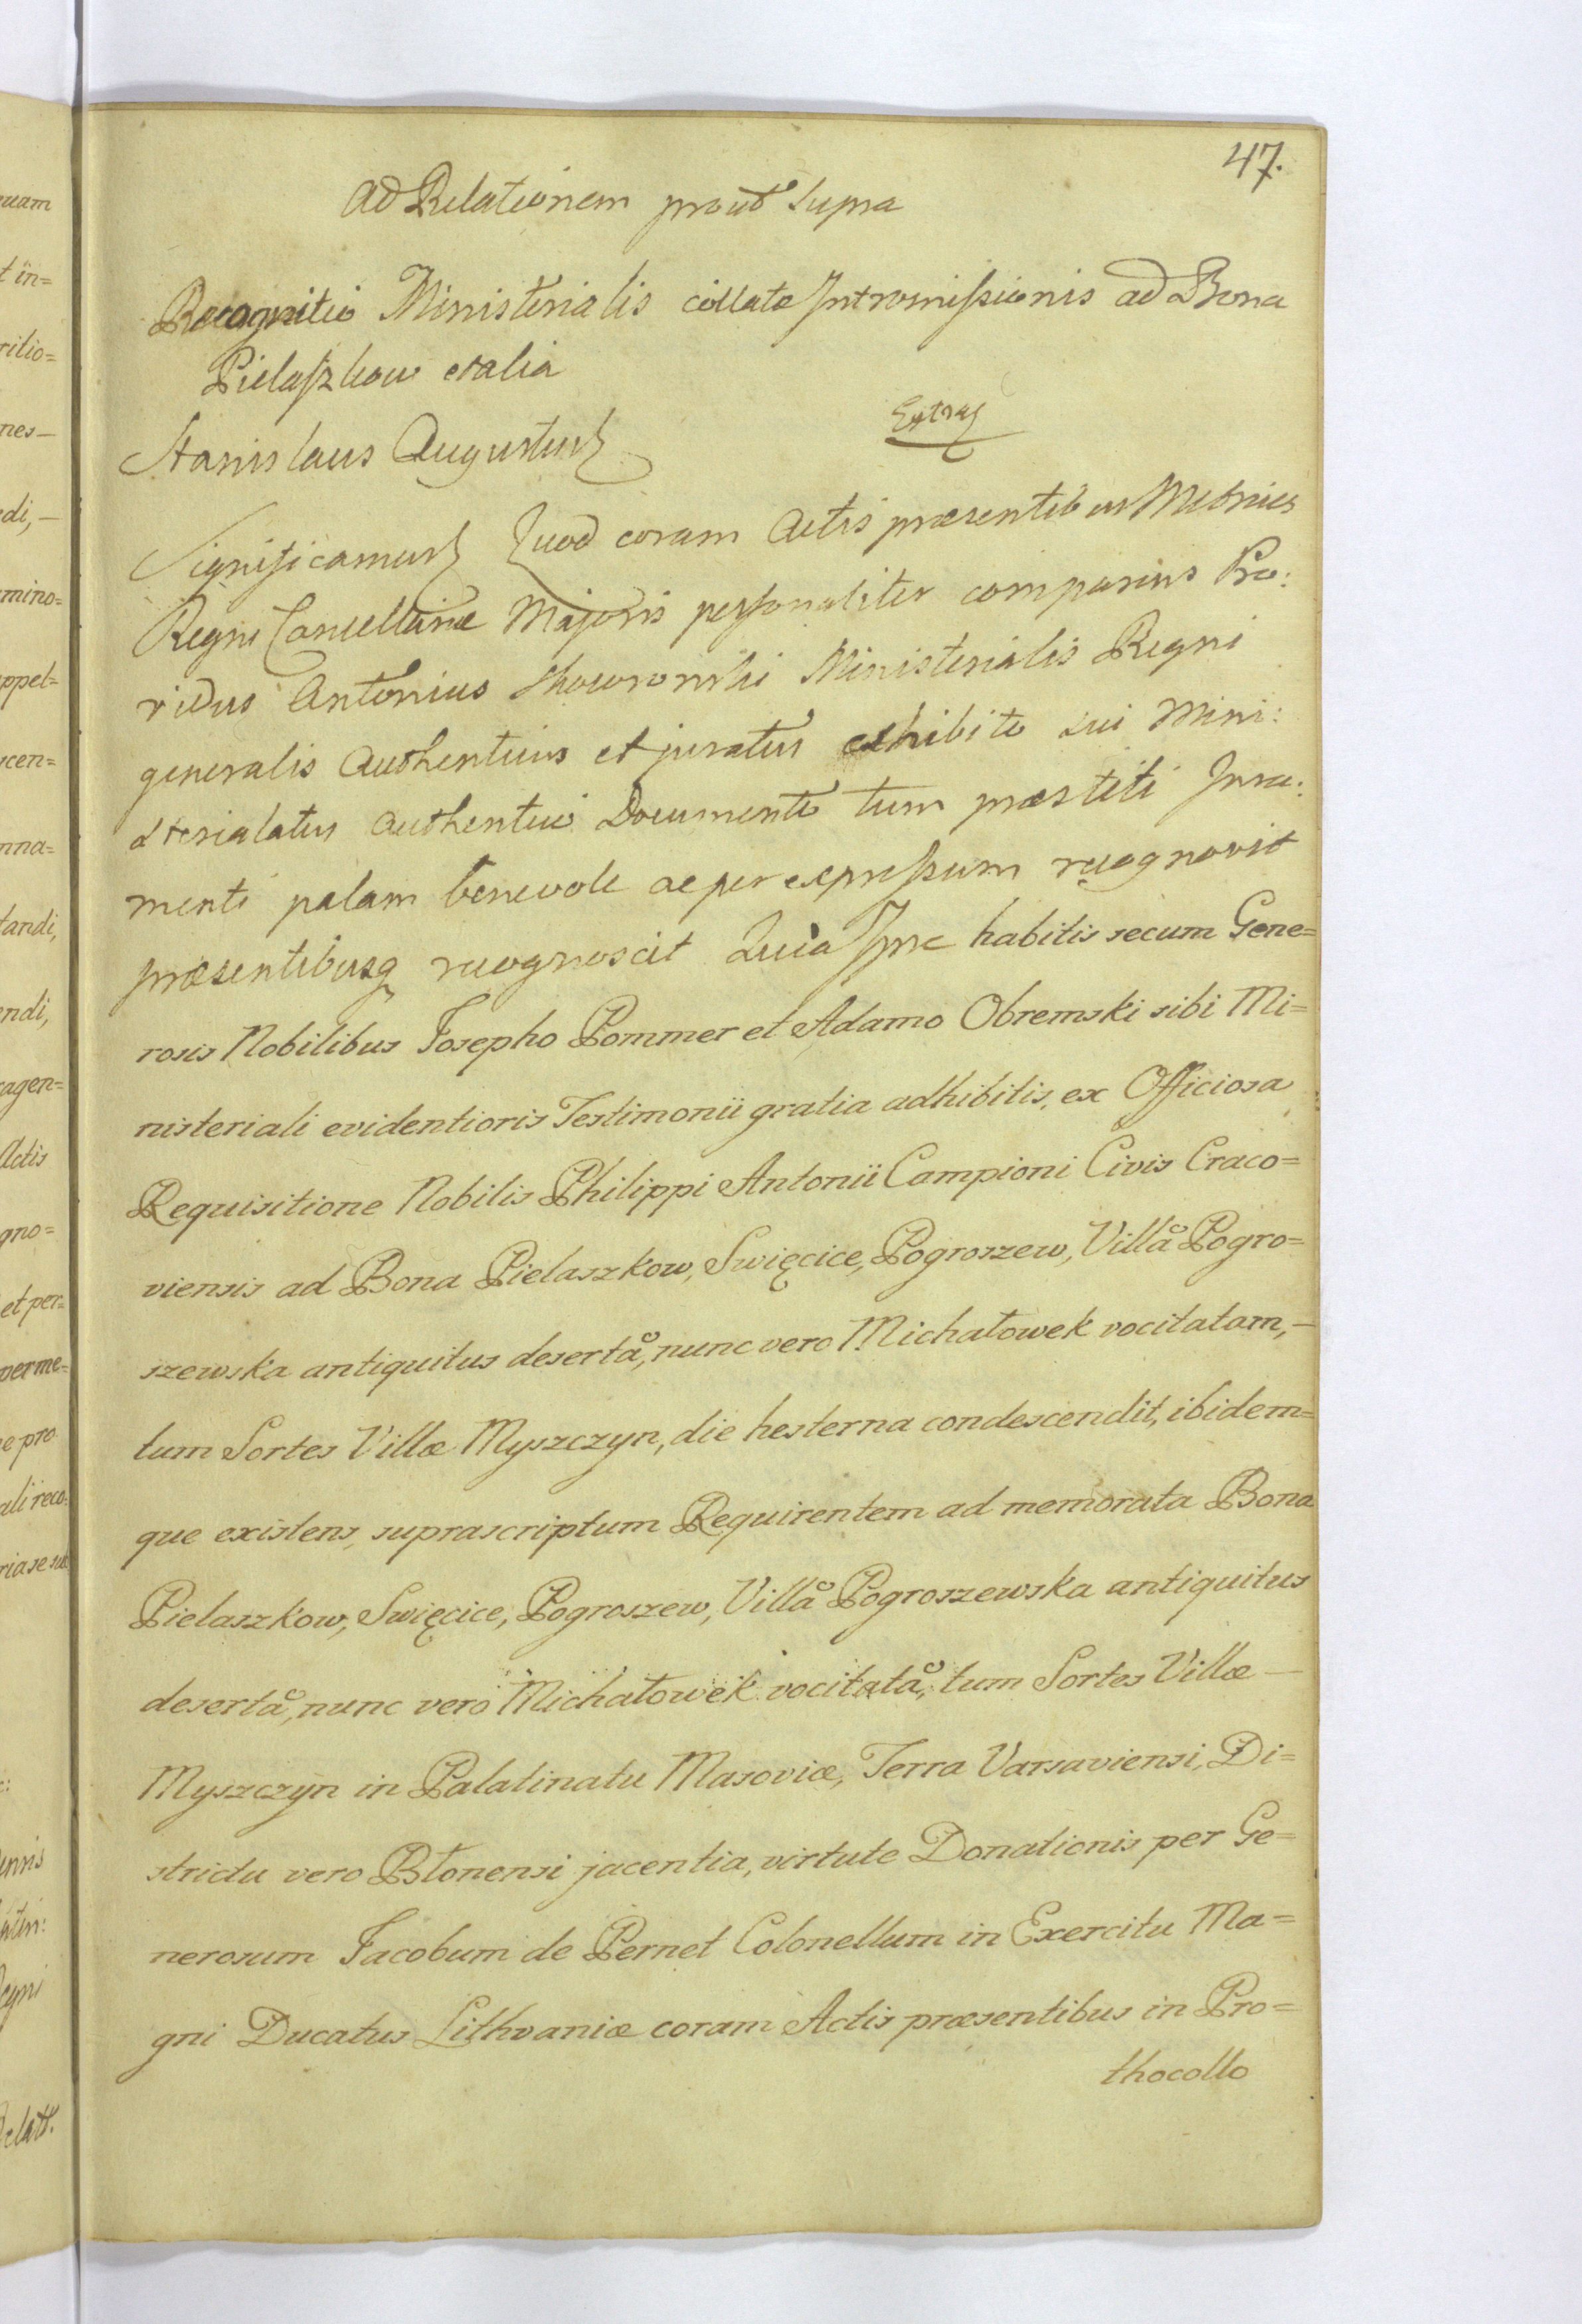 47.
Ad Relationem prout supra
Recognitio Ministerialis collatæ Intromissionis ad Bona
Pielaszkow et alia
Stanislaus Augustus
Significamus Quod coram Actis præsentibus Metrices
Regni Cancellariæ Majoris personaliter comparens Pro:
vidus Antonius Skowronski Ministerialis Regni
generalis Authenticus et juratus exhibito sui Mini:
sterialatus authentici Documento tum præstiti Jura:
menti palam benevole ac per expressum recognovit
præsentibusq recognoscit Quia Ipse habitis secum Gene=
rosis Nobilibus Josepho Pommer et Adamo Obremski sibi Mi=
nisteriali evidentioris Testimonii gratia adhibitis, ex Officiosa
Requisitione Nobilis Philippi Antonii Campioni Civis Craco=
viensis ad Bona Pielaszkow, Swięcice, Pogroszew, Villa Pogro=
szewska antiquitus deserta, nunc vero Michałowek vocitatam, —
tum Sortes Villæ Myszczyn, die hesterna condescendit, ibidem=
que existens, suprascriptum Requirentem ad memorata Bona
Pielaszkow, Swięcice, Pogroszew, Villa Pogroszewska antiquitus
deserta, nunc vero Michałowek vocitata, tum Sortes Villæ —
Myszczyn in Palatinatu Masoviæ, Terra Varsaviensi, Di=
strictu vero Błonensi jacentia, virtute Donationis per Ge=
nerosum Jacobum de Pernet Colonellum in Exercitu Ma=
gni Ducatus Lithvaniæ coram Actis præsentibus in Pro=
thocollo